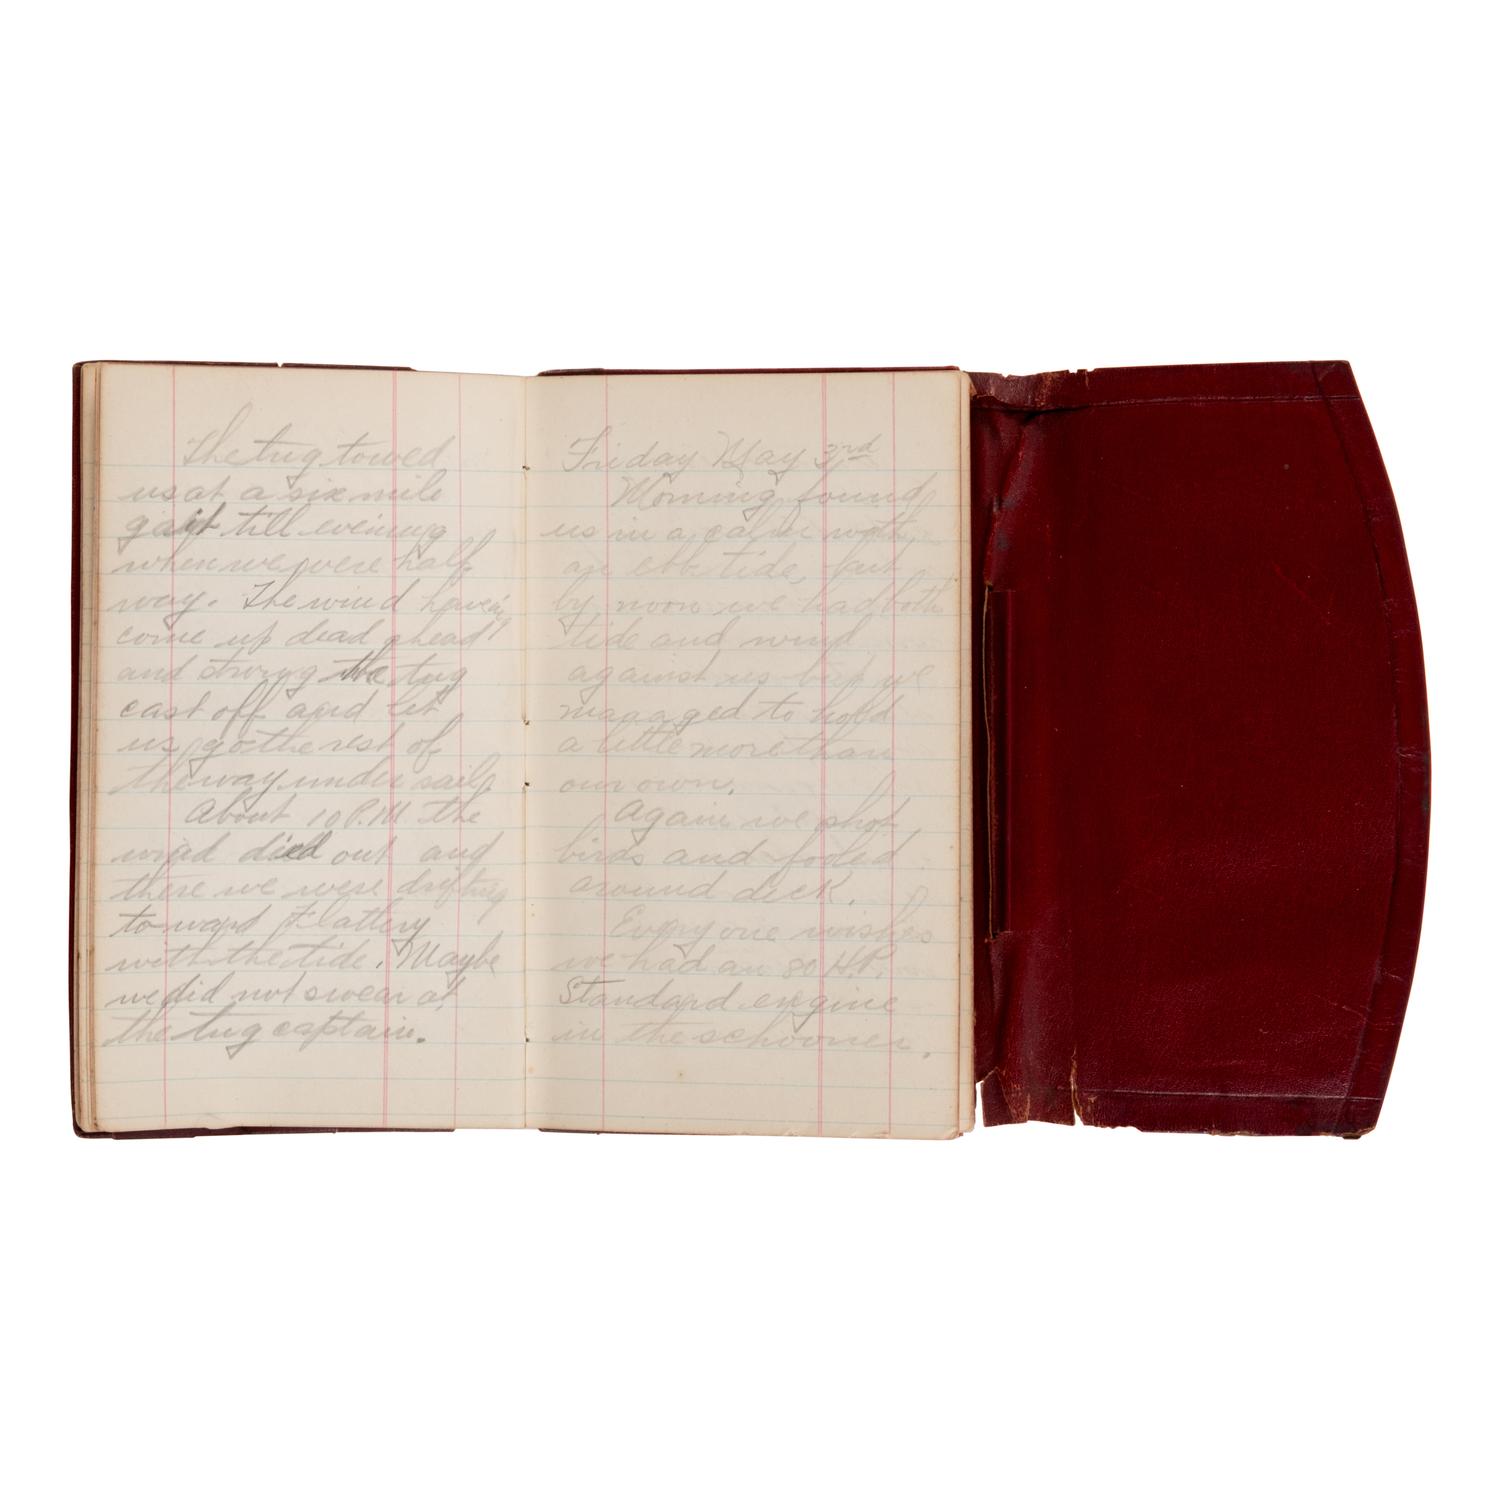 The tug towed
us at a six mile
gait till evening
when we were half
way. The wind haveing
come up dead ahead
and strong the tug
cast off and let
us go the rest of
the way under sail.
About 10 P.M. the
wind died out and
there we were drifting
toward Flattery
with the tide. Maybe
we did not swear at
the tug captain.
Friday May 3rd
Morning found
us in a calm with
an ebb tide, but
by noon we had both
tide and wind
against us but we
managed to hold
a little more than
our own.
Again we shot
birds and
around deck.
Everyone wishes
we had an 80 H.P.
Standard engine
in the schooner.